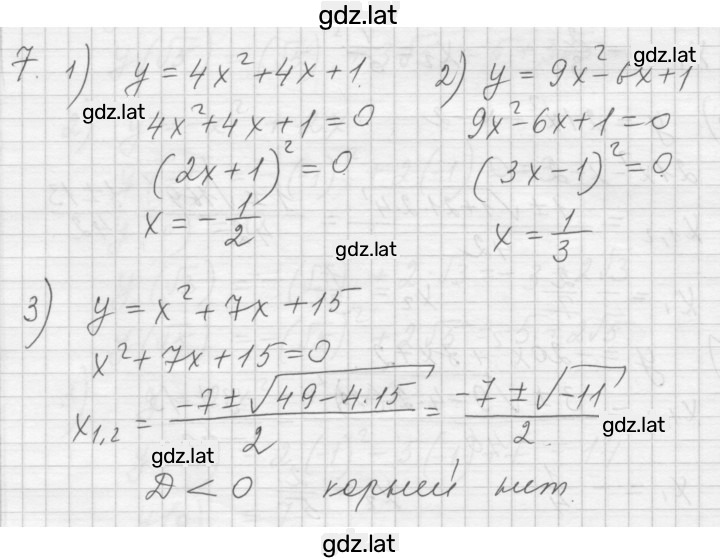 gdz.lat
7. 1) y = 4x² + 4x + 1.
gdz.lat
4x² + 4x + 1 = 0
(2x + 1)² = 0
x = -1/2
gdz.lat
2) y = 9x² - 6x + 1
9x² - 6x + 1 = 0
(3x - 1)² = 0
x = 1/3
gdz.lat
3) y = x² + 7x + 15
x² + 7x + 15 = 0
x₁,₂ = (-7 ± √(49 - 4·15))/2 = (-7 ± √(-11))/2
gdz.lat
gdz.lat
D < 0 корней нет.
gdz.lat